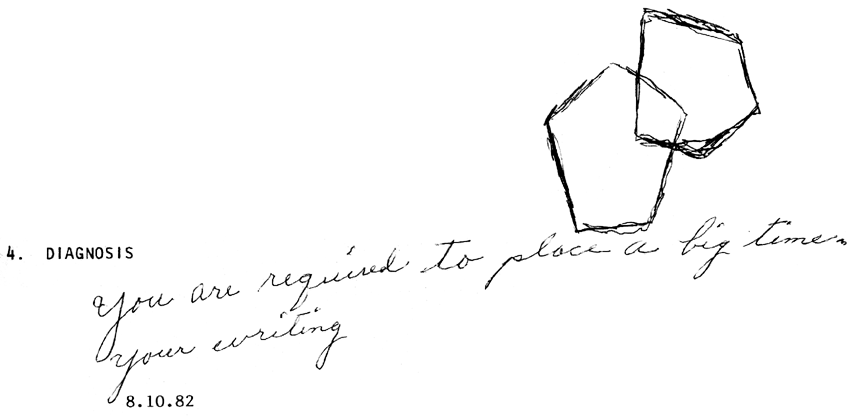 4. DIAGNOSIS
You are required to place a big time
your writing
8.10.82